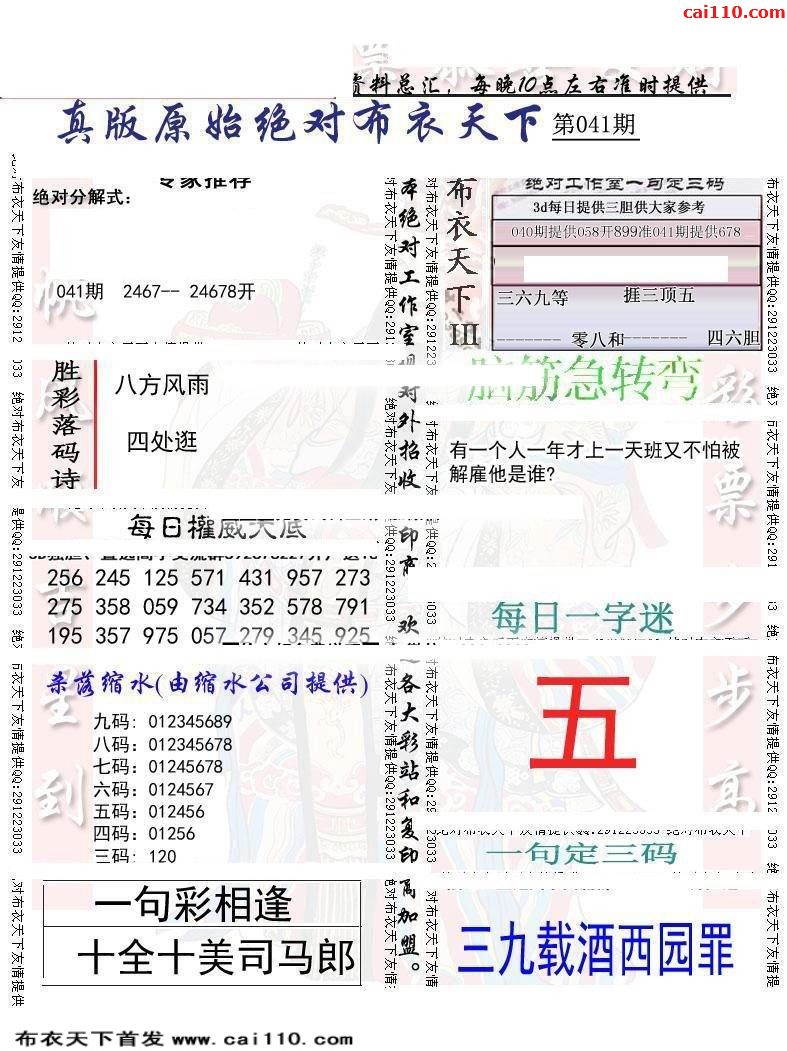 cai110.com
资料总汇，每晚10点左右准时提供
真版原始绝对布衣天下 第041期
专家推荐
绝对分解式：
041期 2467-- 24678开
胜彩落码诗
八方风雨
四处逛
每日權威大底
256 245 125 571 431 957 273
275 358 059 734 352 578 791
195 357 975 057 279 345 925
杀落缩水(由缩水公司提供)
九码: 012345689
八码: 012345678
七码: 01245678
六码: 0124567
五码: 012456
四码: 01256
三码: 120
一句彩相逢
十全十美司马郎
布衣天下III
绝对工作室一句定三码
3d每日提供三胆供大家参考
040期提供058开899准041期提供678
三六九等 捱三顶五
-------- 零八和------- 四六胆
脑筋急转弯
有一个人一年才上一天班又不怕被
解雇他是谁?
每日一字迷
五
一句定三码
三九载酒西园罪
布衣天下首发 www.cai110.com